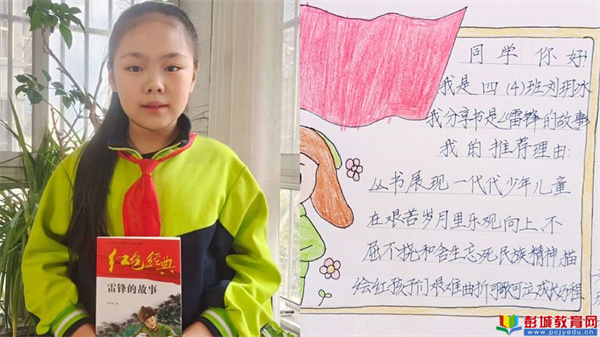 红色经典
雷锋的故事
同学你好!
我是四(4)班刘玥冰
我分享书是《雷锋的故事
我的推荐理由:
丛书展现一代代少年儿童
在艰苦岁月里乐观向上、不
屈不挠和舍生忘死民族精神描
绘红孩子们艰难曲折可歌可泣成长历程
彭城教育网
www.pcjyedu.cn